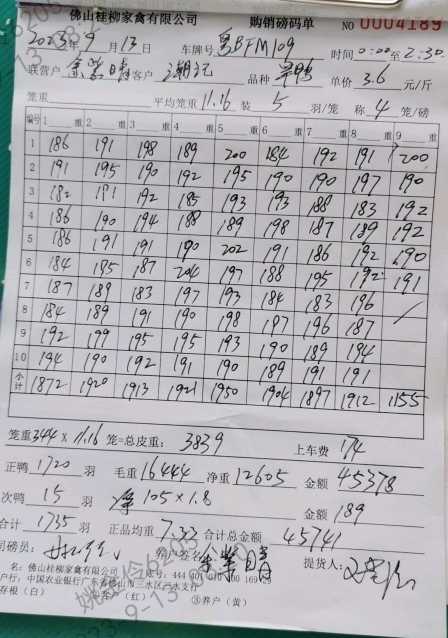 佛山桂柳家禽有限公司 购销磅码单 NO 0004189
2023年9月13日 车牌号 粤BFM109 时间 0:00至2:30
联营户 客户 潮记 品种 单价 3.6 元/斤
笼重 平均笼重 11.16 装 5 羽/笼 称 4 笼/磅
编号 1 重 2 重 3 重 4 重 5 重 6 重 7 重 8 重 9 重
1 186 191 198 189 200 184 192 191 200
2 191 195 190 192 195 190 190 197 190
3 182 191 192 185 193 193 188 183 192
4 186 190 194 188 189 198 187 189 192
5 186 191 191 190 202 191 186 192 190
6 184 185 187 204 197 188 195 192 191
7 187 189 183 197 193 184 183 196
8 184 189 191 190 198 187 196 187
9 192 199 195 195 193 190 189 194
10 194 190 192 191 190 189 191 191
小计 1872 1920 1913 1921 1950 1904 1897 1912 1155
笼重 344 x 11.16 笼=总皮重: 3839 上车费 174
正鸭 1720 羽 毛重 16444 净重 12605 金额 45378
次鸭 15 羽 净 105×1.8 金额 189
合计 1735 羽 正品均重 7.33 合计总金额 45741
司磅员: 养户签名: 提货人:
名: 佛山桂柳家禽有限公司
户行: 中国农业银行广东省佛山市三水区
存根(白) (红) ③养户(黄)